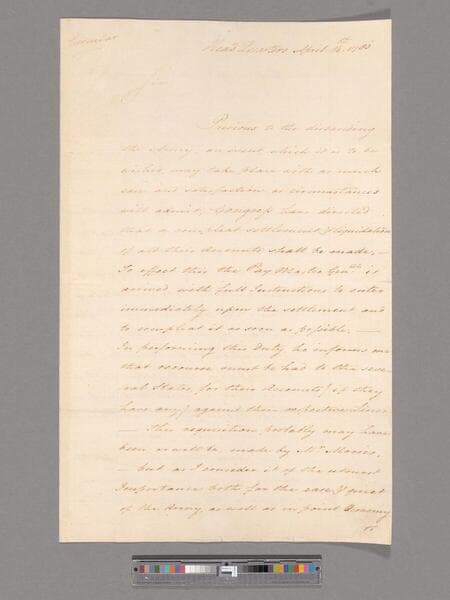 Circular
Head Quarters April 16th. 1783
Sir
Previous to the disbanding
the Army, an event which it is to be
wished, may take place with as much
ease and satisfaction as circumstances
will admit, Congress have directed
that a compleat settlement & liquidation
of all their Accounts shall be made,—
To effect this the Pay Master Genl. is
arrived with full Instructions to enter
immediately upon the settlement and
to compleat it as soon as possible. —
In performing this Duty he informs me
that recourse must be had to the seve-
ral States, for their Accounts (if they
have any) against their respective Lines
— This requisition probably may have
been or will be made by Mr Morris,
— but as I consider it of the utmost
Importance both for the ease & quiet
of the Army, as well as in point Œconomy
to